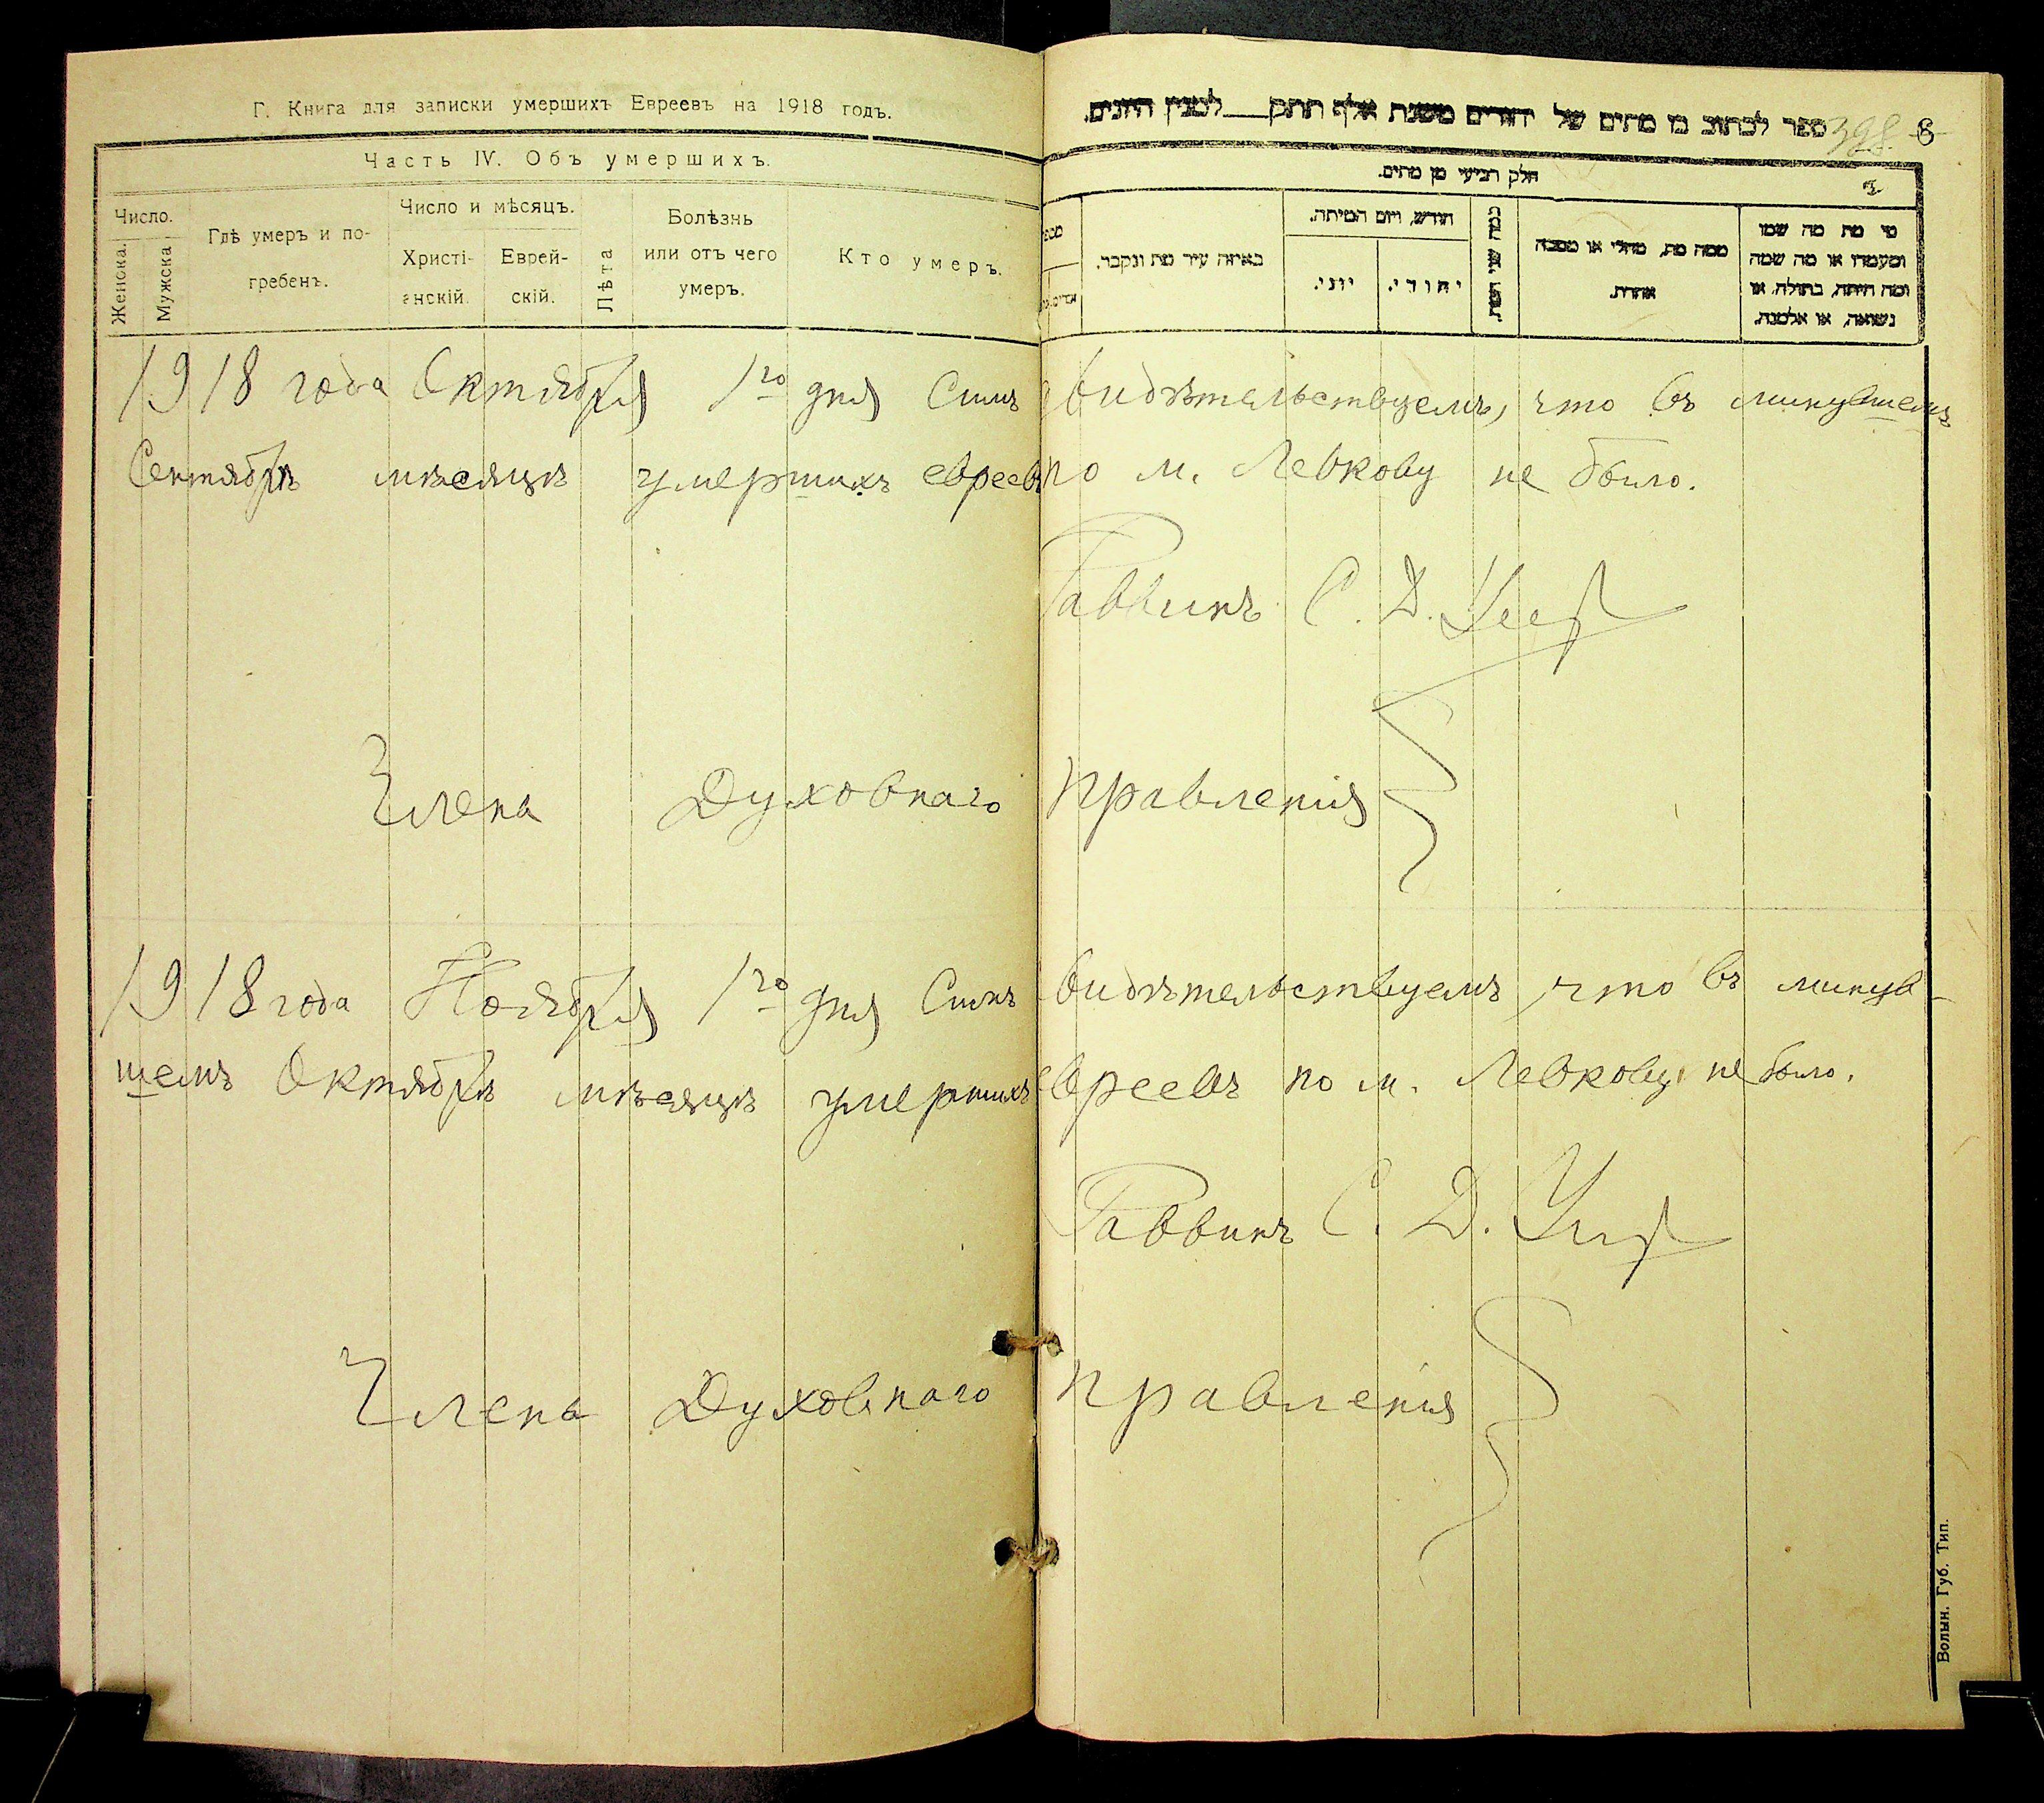 Г. Книга для записки умершихъ Евреевъ на 1918 годъ.
Часть IV. Объ умершихъ.
Число.
Женска.
Мужска
Гдѣ умеръ и по-
гребенъ.
Число и мѣсяцъ.
Христі-
анскій.
Еврей-
скій.
Лѣта
Болѣзнь
или отъ чего
умеръ.
Кто умеръ.
ספר לכתוב בו מתים של יהודים משנת אלף תתק___למנין היונים.
398
8
חלק רביעי מן מתים.
מי מת מה שמו
ומעמדו או מה שמה
ומה היתה, בתולה, או
נשואה, או אלמנה.
ממה מת, מחלי או מסבה
אחרת.
כמה שני המת.
חודש, ויום המיתה.
יהודי.
יוני.
באיזה עיר מת ונקבר.
1918 года Октября 1го дня Симъ свидѣтельствуемъ, что въ минувшемъ
Сентябрѣ мѣсяцѣ умершихъ евреевъ по м. Левкову не было.
Раввинъ С. Д.
Члена Духовнаго правленія
1918 года Ноября 1го дня Симъ свидѣтельствуемъ, что въ минув-
шемъ Октябрѣ мѣсяцѣ умершихъ евреевъ по м. Левкову не было.
Раввинъ С. Д.
Члена Духовнаго правленія
Волын. Губ. Тип.